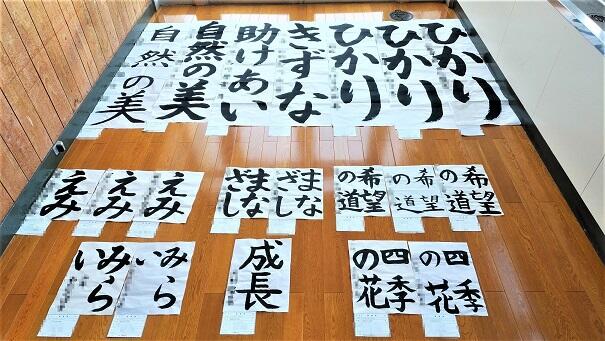 ひかり
ひかり
ひかり
きずな
助けあい
自然の美
自然の美
希望
の道
希望
の道
希望
の道
まな
ざし
まな
ざし
えみ
えみ
えみ
四季
の花
四季
の花
成長
みら
い
みら
い